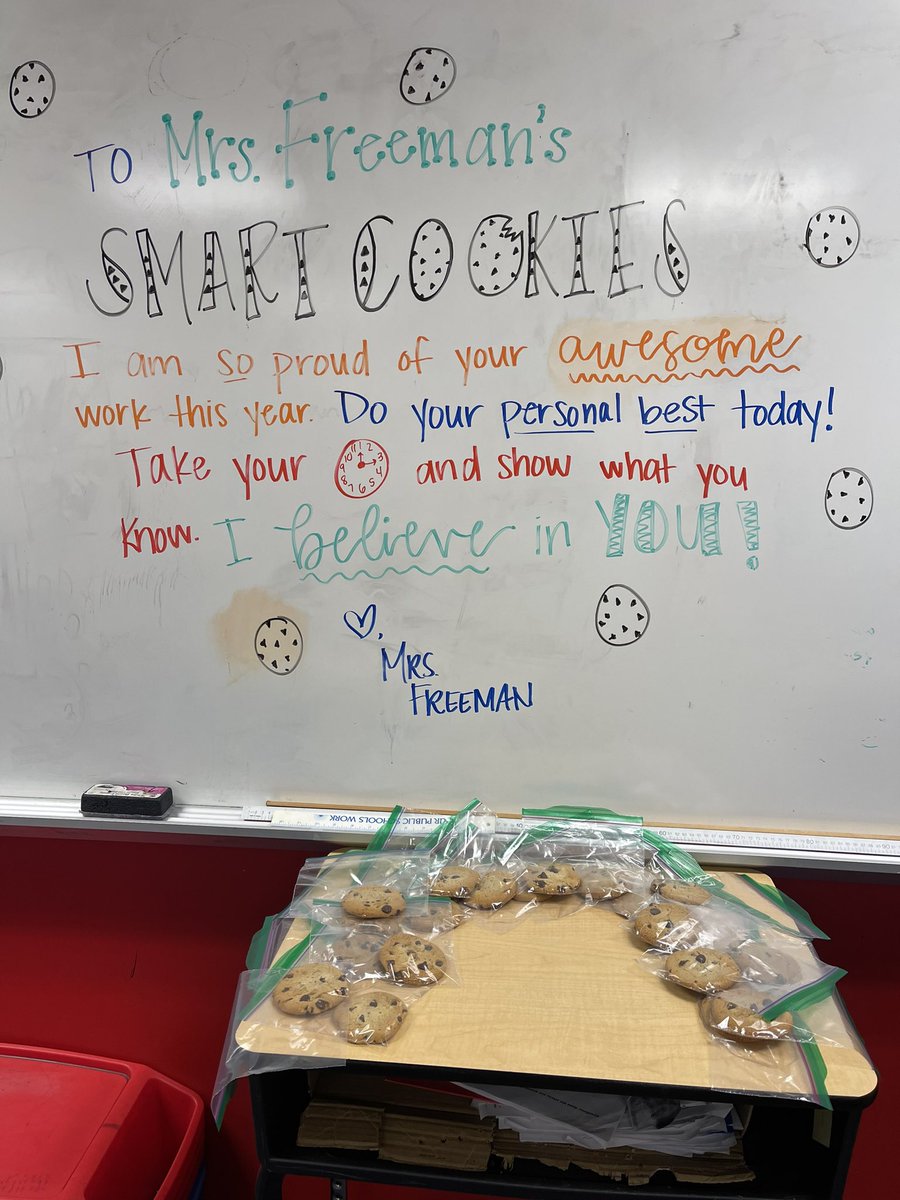 TO Mrs. Freeman's
SMART COOKIES
I am so proud of your awesome
work this year. Do your personal best today!
Take your and show what you
know. I believe in YOU!
Mrs.
FREEMAN
UR PUBLIC SCHOOLS WORK